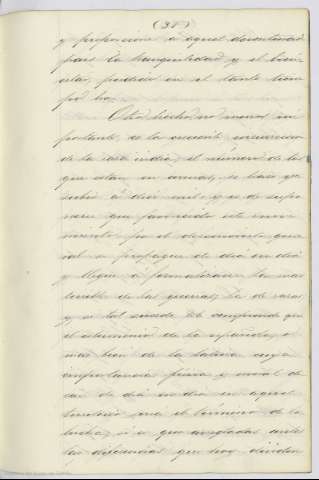 (38)
y proporcione á aquel desventurado
pais la tranquilidad y el bien
estar, perdido en el tanto tiem
po ha.
Otro hecho no menos im
portante, es la creciente insurreccion
de la raza india; el número de los
que están en armas, se hace ya
subir á diez mil; y es de supo
nerse que favorecido este movi
miento por el descontento gene
ral se propague de dia en dia
y llegue á formalizarse la mas
terrible de las guerras, la de razas
y si tal sucede se comprende que
el esterminio de la española, ó
mas bien de la latina cuya
importancia fisica y moral de
cae de dia en dia en aquel
territorio será el termino de la
lucha; si á que arregladas antes
las diferencias que hoy dividen